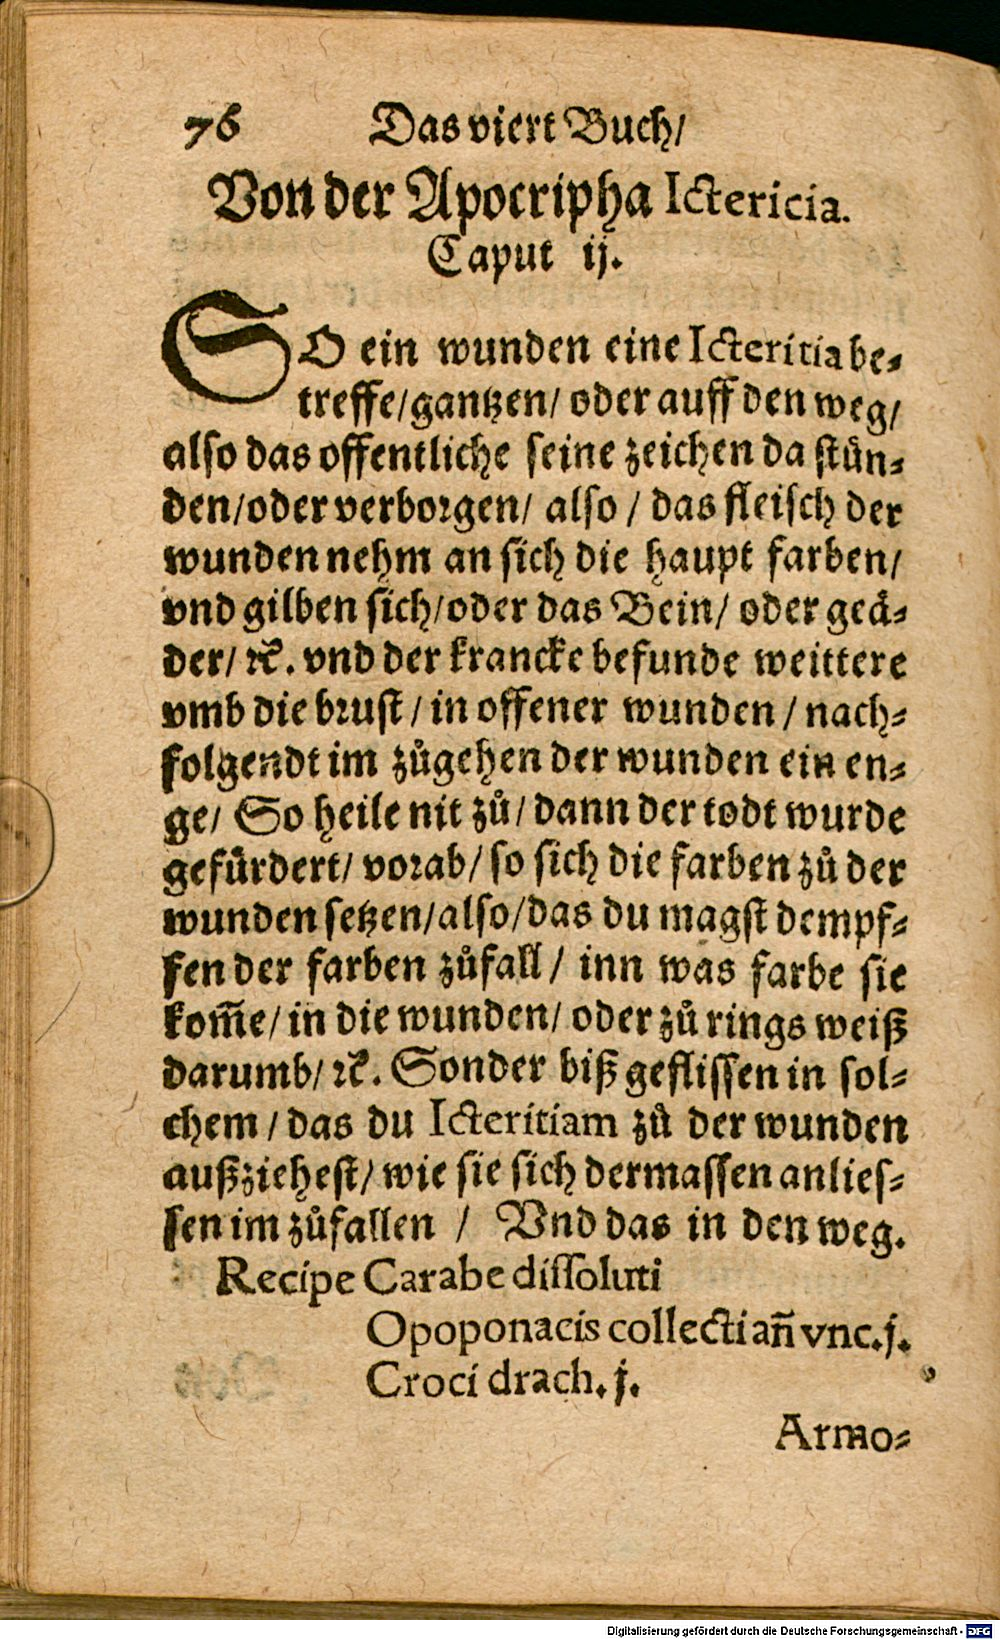 76 Das viert Buch/
Von der Apocripha Ictericia.
Caput ij.
SO ein wunden eine Icteritia be-
treffe/gantzen/ oder auff den weg/
also das offentliche seine zeichen da stůn-
den/oder verborgen/ also / das fleisch der
wunden nehm an sich die haupt farben/
vnd gilben sich/oder das Bein/ oder geä-
der/ ꝛc̃. vnd der krancke befunde weittere
vmb die brust / in offener wunden / nach-
folgendt im zůgehen der wunden ein en-
ge/ So heile nit zů/ dann der todt wurde
gefürdert/ vorab/ so sich die farben zů der
wunden setzen/also/das du magst dempf-
fen der farben zůfall / inn was farbe sie
kom̃e/ in die wunden/ oder zů rings weiß
darumb/ ꝛc̃. Sonder biß geflissen in sol-
chem / das du Icteritiam zů der wunden
außziehest/ wie sie sich dermassen anlies-
sen im zůfallen / Vnd das in den weg.
Recipe Carabe dissoluti
Opoponacis collecti añ vnc. j.
Croci drach. j.
Armo-
Digitalisierung gefördert durch die Deutsche Forschungsgemeinschaft - DFG